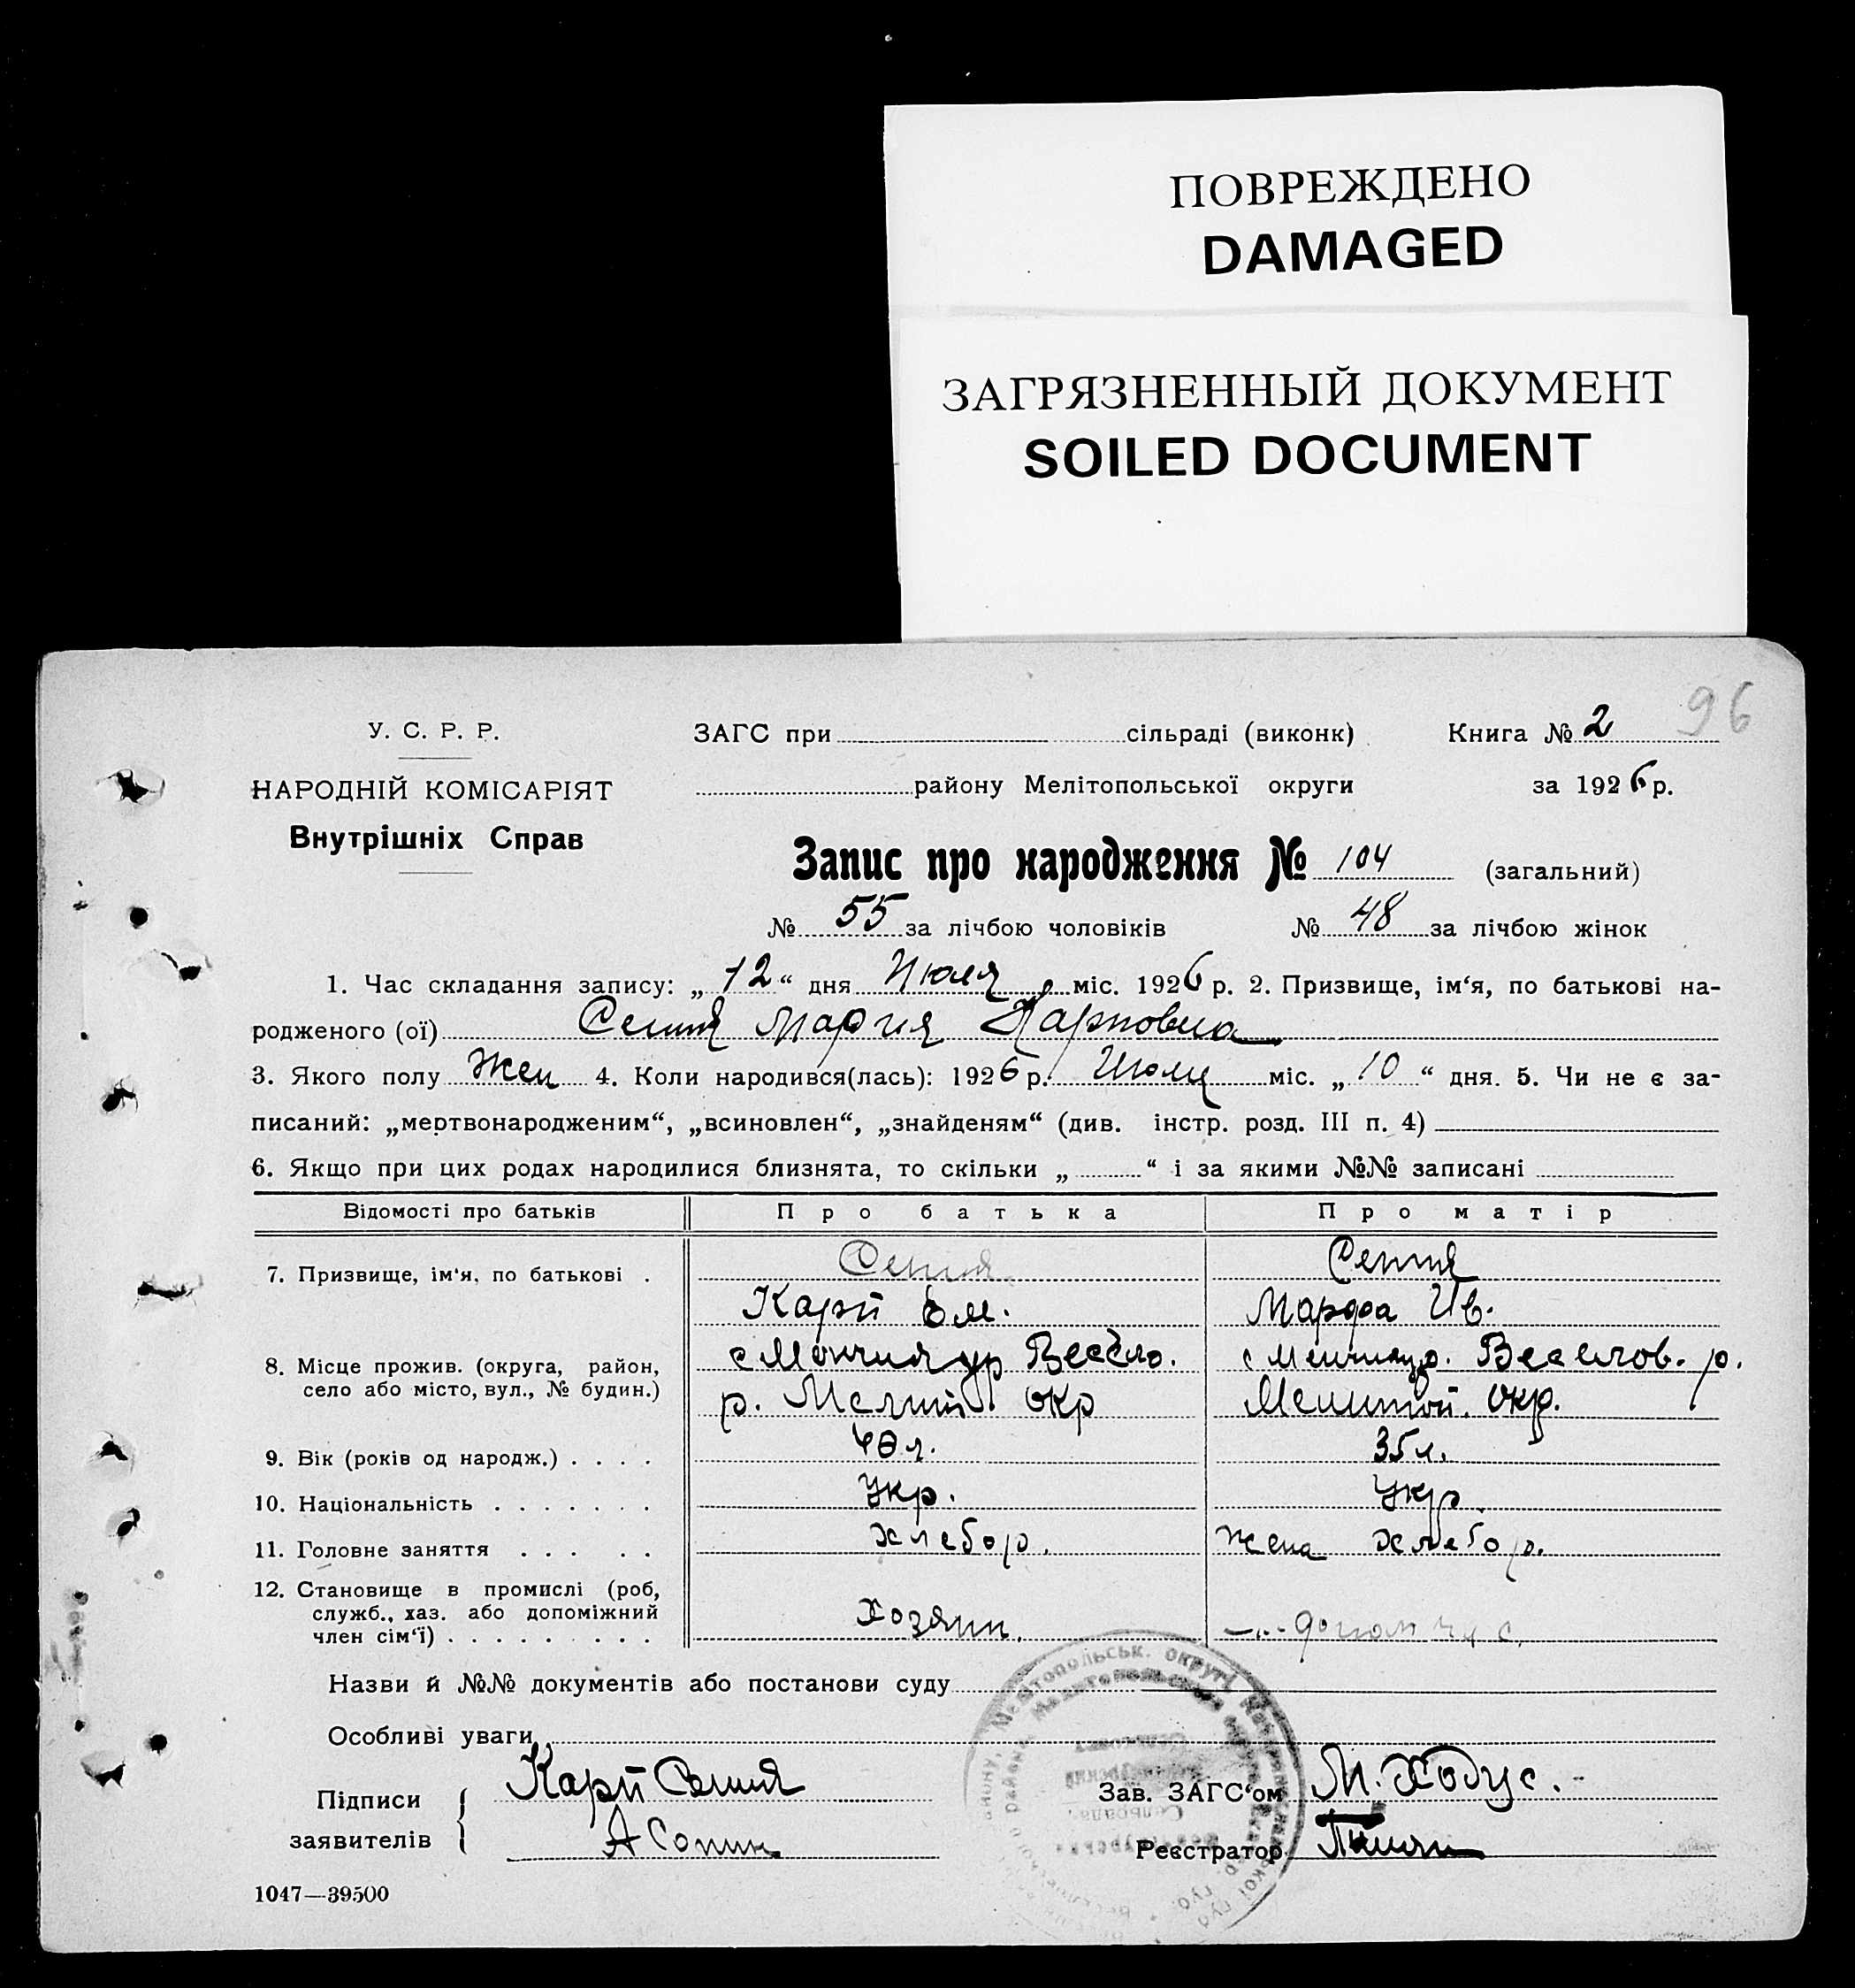 ПОВРЕЖДЕНО
DAMAGED
ЗАГРЯЗНЕННЫЙ ДОКУМЕНТ
SOILED DOCUMENT
96
У. С. Р. Р.
НАРОДНІЙ КОМІСАРІЯТ
Внутрішніх Справ
ЗАГС при сільраді (виконк)
Книга № 2
району Мелітопольської округи
за 1926 р.
Запис про народження № 104 (загальний)
№ 55 за лічбою чоловіків № 48 за лічбою жінок
1. Час складання запису: „12“ дня Июля міс. 1926 р. 2. Призвище, ім‘я, по батькові на-
родженого (ої) Мария Карповна
3. Якого полу Жен 4. Коли народився(лась): 1926 р. Июля міс. „10“ дня. 5. Чи не є за-
писаний: „мертвонародженим“, „всиновлен“, „знайденям“ (див. інстр. розд. III п. 4)
6. Якщо при цих родах народилися близнята, то скільки „ “ і за якими №№ записані
Відомості про батьків Про батька Про матір
7. Призвище, ім‘я, по батькові . Сепия Сепия
Карп Ем. Марфа Ив.
8. Місце прожив. (округа, район, село або місто, вул., № будин.) с Менчикур Весело. с Менчикур. Веселов. р.
р. Мелит окр Мелитоп. окр.
9. Вік (років од народж.) . . . . 40 л. 35 л.
10. Національність . . . . . . . Укр. Укр.
11. Головне заняття . . . . . хлебор. жена хлебор.
12. Становище в промислі (роб, служб., хаз. або допоміжний член сім‘ї) . . . . . . . . . Хозяин.
Назви й №№ документів або постанови суду
Особливі уваги
Підписи
заявителів
Карп
Зав. ЗАГС‘ом М. Ходус.
Реєстратор
1047—39500